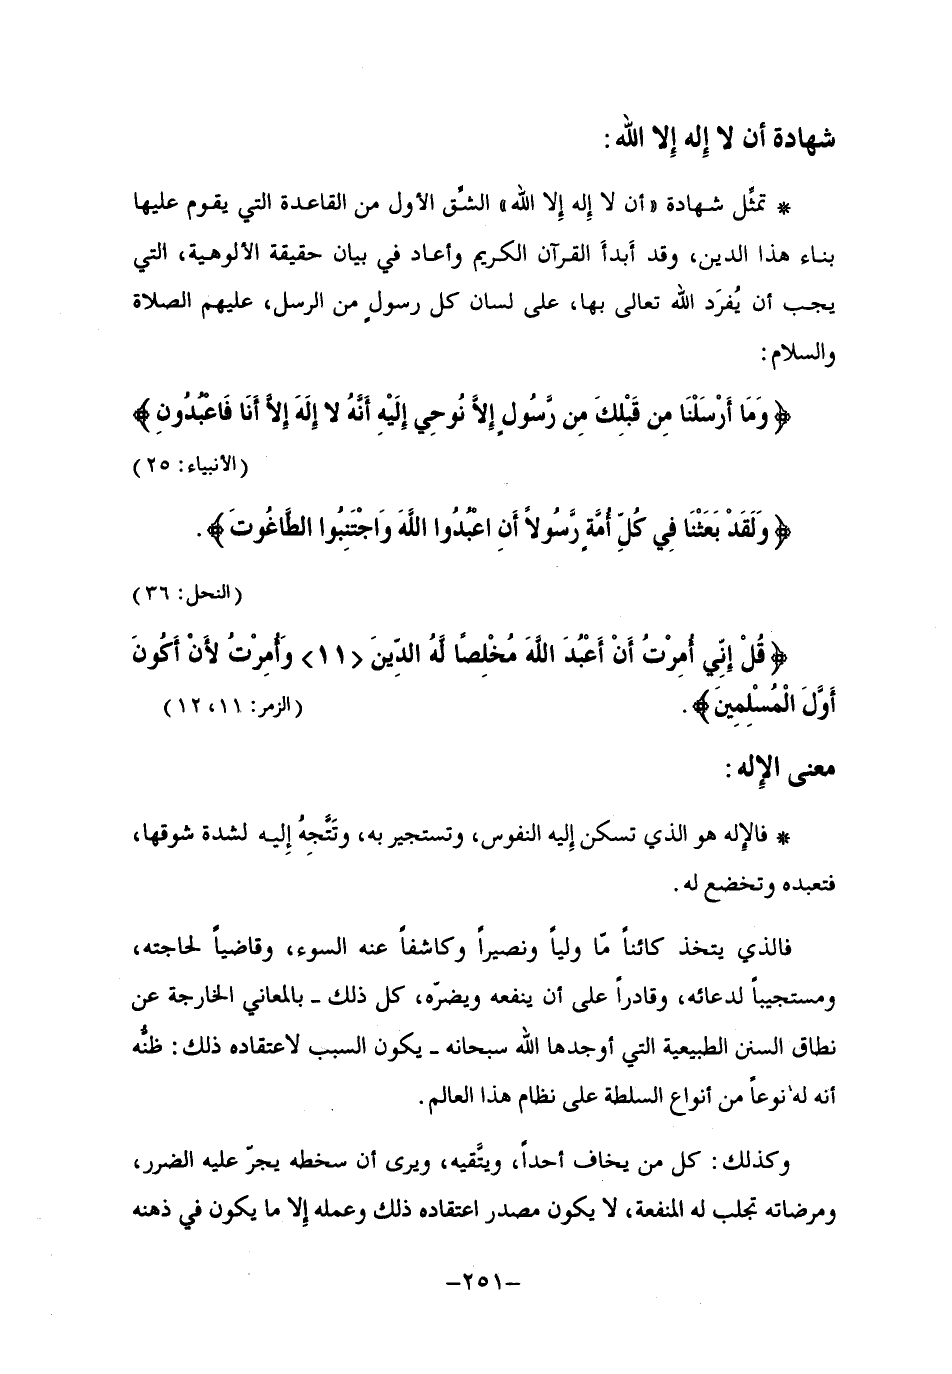 شهادة أن لا إله إلا الله :
* تمثِّل شهادة «أن لا إله إلا الله» الشق الأول من القاعدة التي يقوم عليها
بناء هذا الدين، وقد أبدأ القرآن الكريم وأعاد في بيان حقيقة الألوهية، التي
يجب أن يُفرَد الله تعالى بها، على لسان كل رسولٍ من الرسل، عليهم الصلاة
والسلام :
﴿ وَمَا أَرْسَلْنَا مِن قَبْلِكَ مِن رَّسُولٍ إِلاَّ نُوحِي إِلَيْهِ أَنَّهُ لا إِلَهَ إِلاَّ أَنَا فَاعْبُدُونِ ﴾
(الأنبياء: ٢٥)
﴿ وَلَقَدْ بَعَثْنَا فِي كُلِّ أُمَّةٍ رَّسُولاً أَنِ اعْبُدُوا اللَّهَ وَاجْتَنِبُوا الطَّاغُوتَ ﴾.
(النحل: ٣٦)
﴿ قُلْ إِنِّي أُمِرْتُ أَنْ أَعْبُدَ اللَّهَ مُخْلِصًا لَّهُ الدِّينَ <١١> وَأُمِرْتُ لأَنْ أَكُونَ
أَوَّلَ الْمُسْلِمِينَ ﴾. (الزمر: ١١، ١٢)
معنى الإله :
* فالإله هو الذي تسكن إليه النفوس، وتستجير به، وتَتَّجهُ إليه لشدة شوقها،
فتعبده وتخضع له.
فالذي يتخذ كائناً مّا ولياً ونصيراً وكاشفاً عنه السوء، وقاضياً لحاجته،
ومستجيباً لدعائه، وقادراً على أن ينفعه ويضرّه، كل ذلك ـ بالمعاني الخارجة عن
نطاق السنن الطبيعية التي أوجدها الله سبحانه ـ يكون السبب لاعتقاده ذلك : ظنُّه
أنه له نوعاً من أنواع السلطة على نظام هذا العالم.
وكذلك : كل من يخاف أحداً، ويتَّقيه، ويرى أن سخطه يجرّ عليه الضرر،
ومرضاته تجلب له المنفعة، لا يكون مصدر اعتقاده ذلك وعمله إلا ما يكون في ذهنه
–٢٥١–